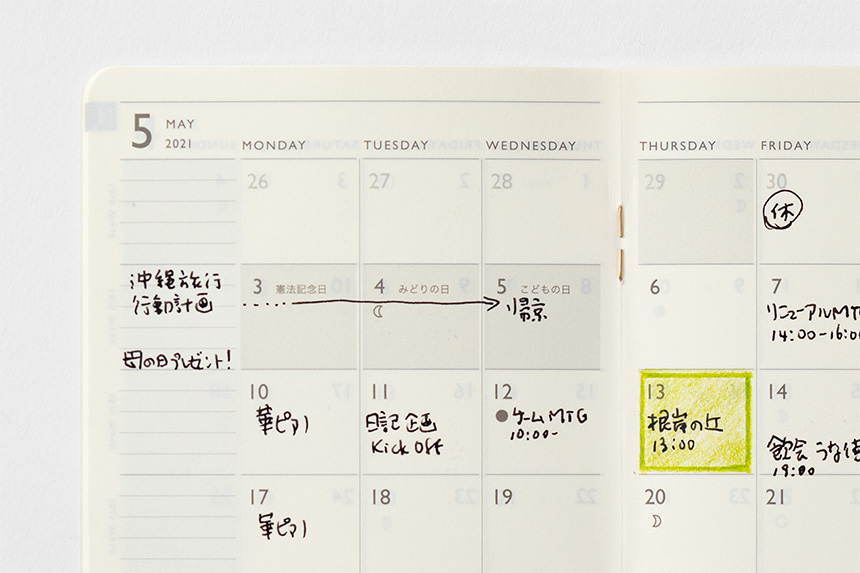 5 MAY
2021
MONDAY TUESDAY WEDNESDAY THURSDAY FRIDAY
26 27 28 29 30
休
沖縄旅行
行動計画
母の日プレゼント!
3 憲法記念日 4 みどりの日 5 こどもの日 6 7
帰京
リニューアルMTG
14:00-16:00
10 11 12 13 14
華ピアノ
日記企画
Kick Off
ゲームMTG
10:00-
根岸の丘
13:00
飲会
19:00
17 18 19 20 21
華ピアノ